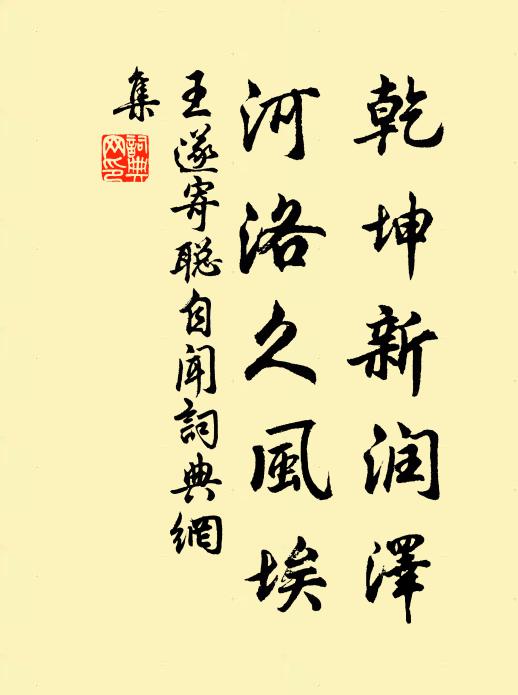 乾坤新润澤
河洛久風埃
王遂寄聪自闻詞典網
集
詞典网印